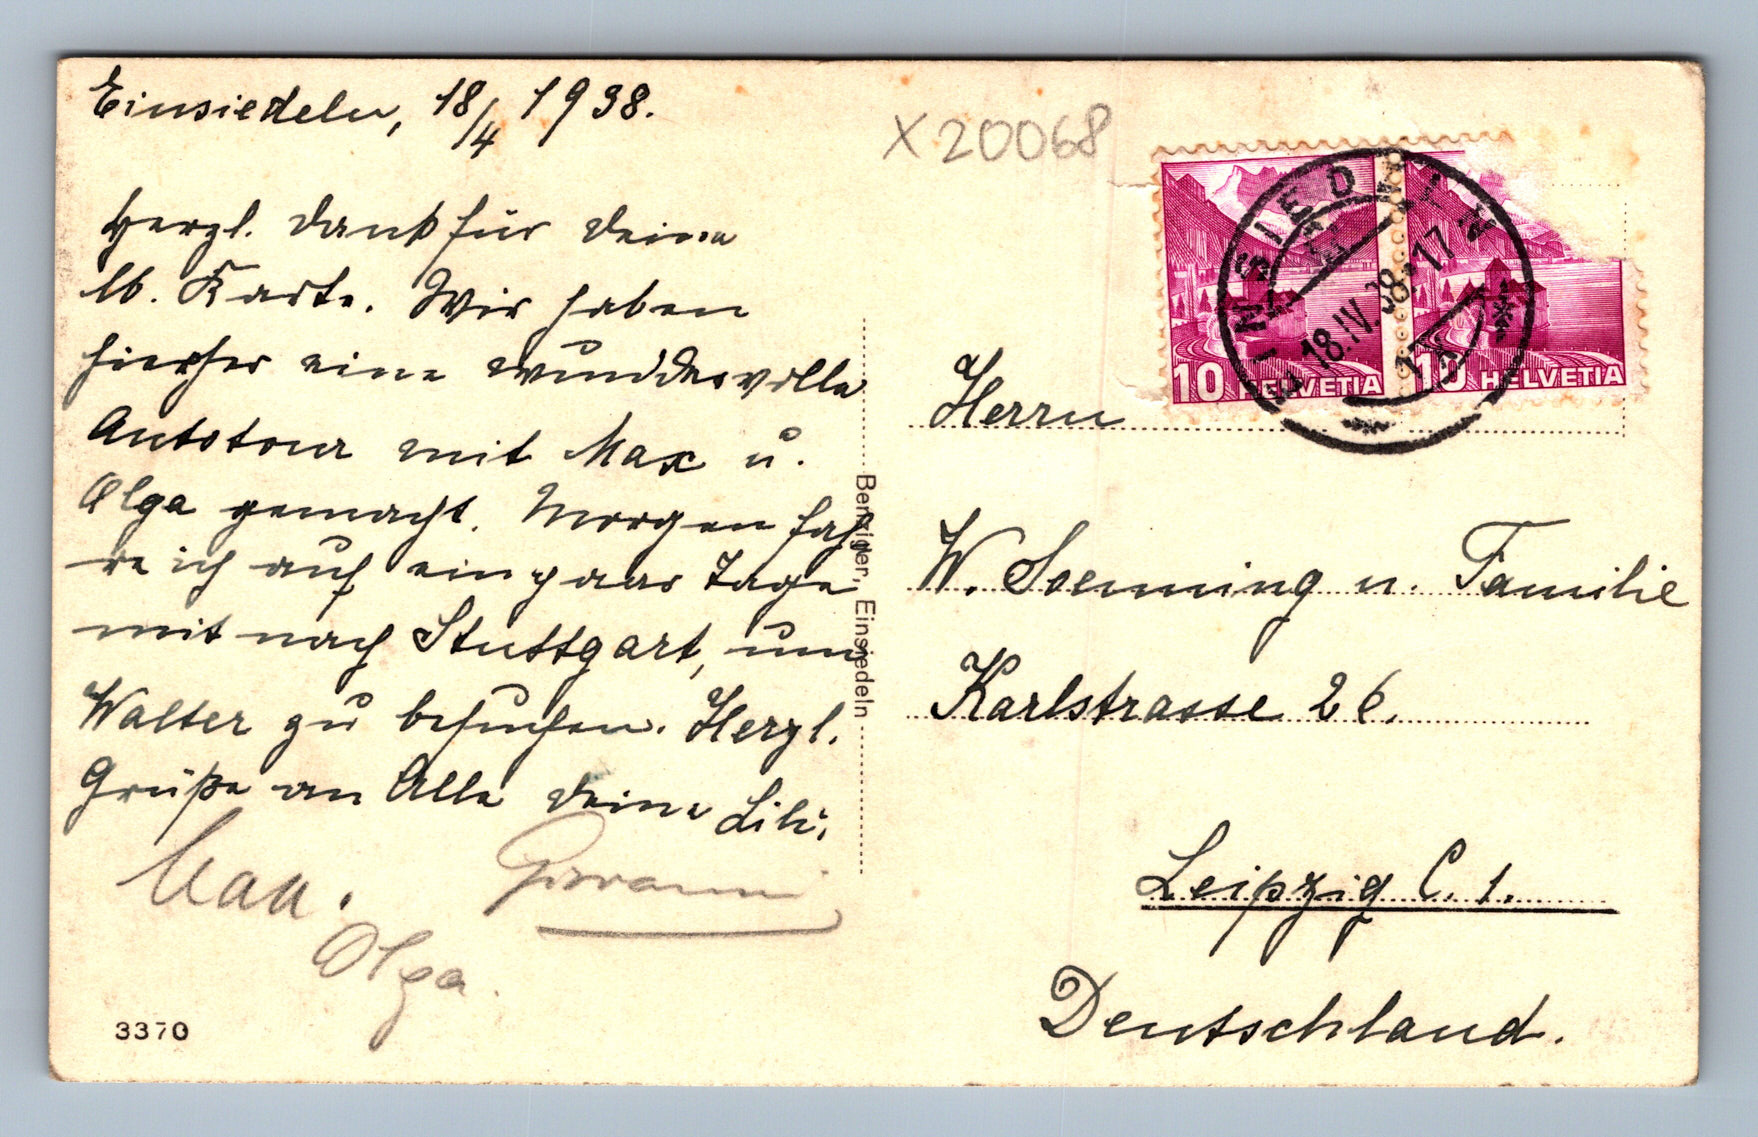 Einsiedeln, 18/4 1938.
Herzl. Dank für Deine
lb. Karte. Wir haben
hierher eine wundervolle
Autotour mit Max u.
Olga gemacht. Morgen fah
re ich auf ein paar Tage
mit nach Stuttgart, um
Walter zu besuchen. Herzl.
Grüße an Alle Deine Lili.
Max. Giovanni
Olga.
3370
Benziger, Einsiedeln
X20068
EINSIEDELN
18.IV.38.17
10 HELVETIA
10 HELVETIA
Herrn
W. Soenning u. Familie
Karlstrasse 26.
Leipzig C. 1.
Deutschland.